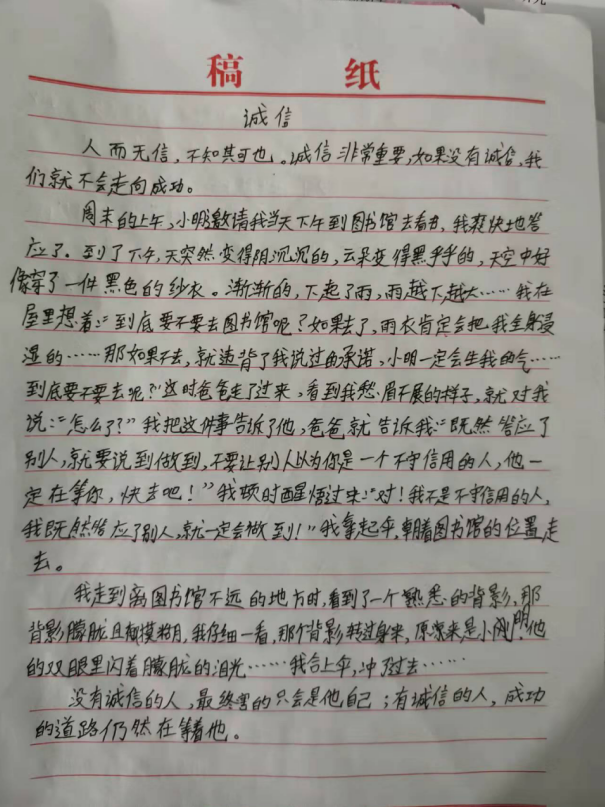 稿 纸
诚信
人而无信，不知其可也。诚信非常重要，如果没有诚信，我
们就不会走向成功。
周末的上午，小明邀请我当天下午到图书馆去看书，我爽快地答
应了。到了下午，天突然变得阴沉沉的，云朵变得黑乎乎的，天空中好
像穿了一件黑色的纱衣。渐渐的，下起了雨，雨越下越大……我在
屋里想着：“到底要不要去图书馆呢？如果去了，雨衣肯定会把我全身浸
湿的……那如果不去，就违背了我说过的承诺，小明一定会生我的气……
到底要不要去呢？”这时爸爸走了过来，看到我愁眉不展的样子，就对我
说：“怎么了？”我把这件事告诉了他，爸爸就告诉我：“既然答应了
别人，就要说到做到，不要让别人以为你是一个不守信用的人，他一
定在等你，快去吧！”我顿时醒悟过来：“对！我不是不守信用的人，
我既然答应了别人，就一定会做到！”我拿起伞，朝着图书馆的位置走
去。
我走到离图书馆不远的地方时，看到了一个熟悉的背影，那
背影朦胧且模糊，我仔细一看，那个背影转过身来，原来是小明，他
的双眼里闪着朦胧的泪光……我合上伞，冲了过去……
没有诚信的人，最终害的只会是他自己；有诚信的人，成功
的道路仍然在等着他。